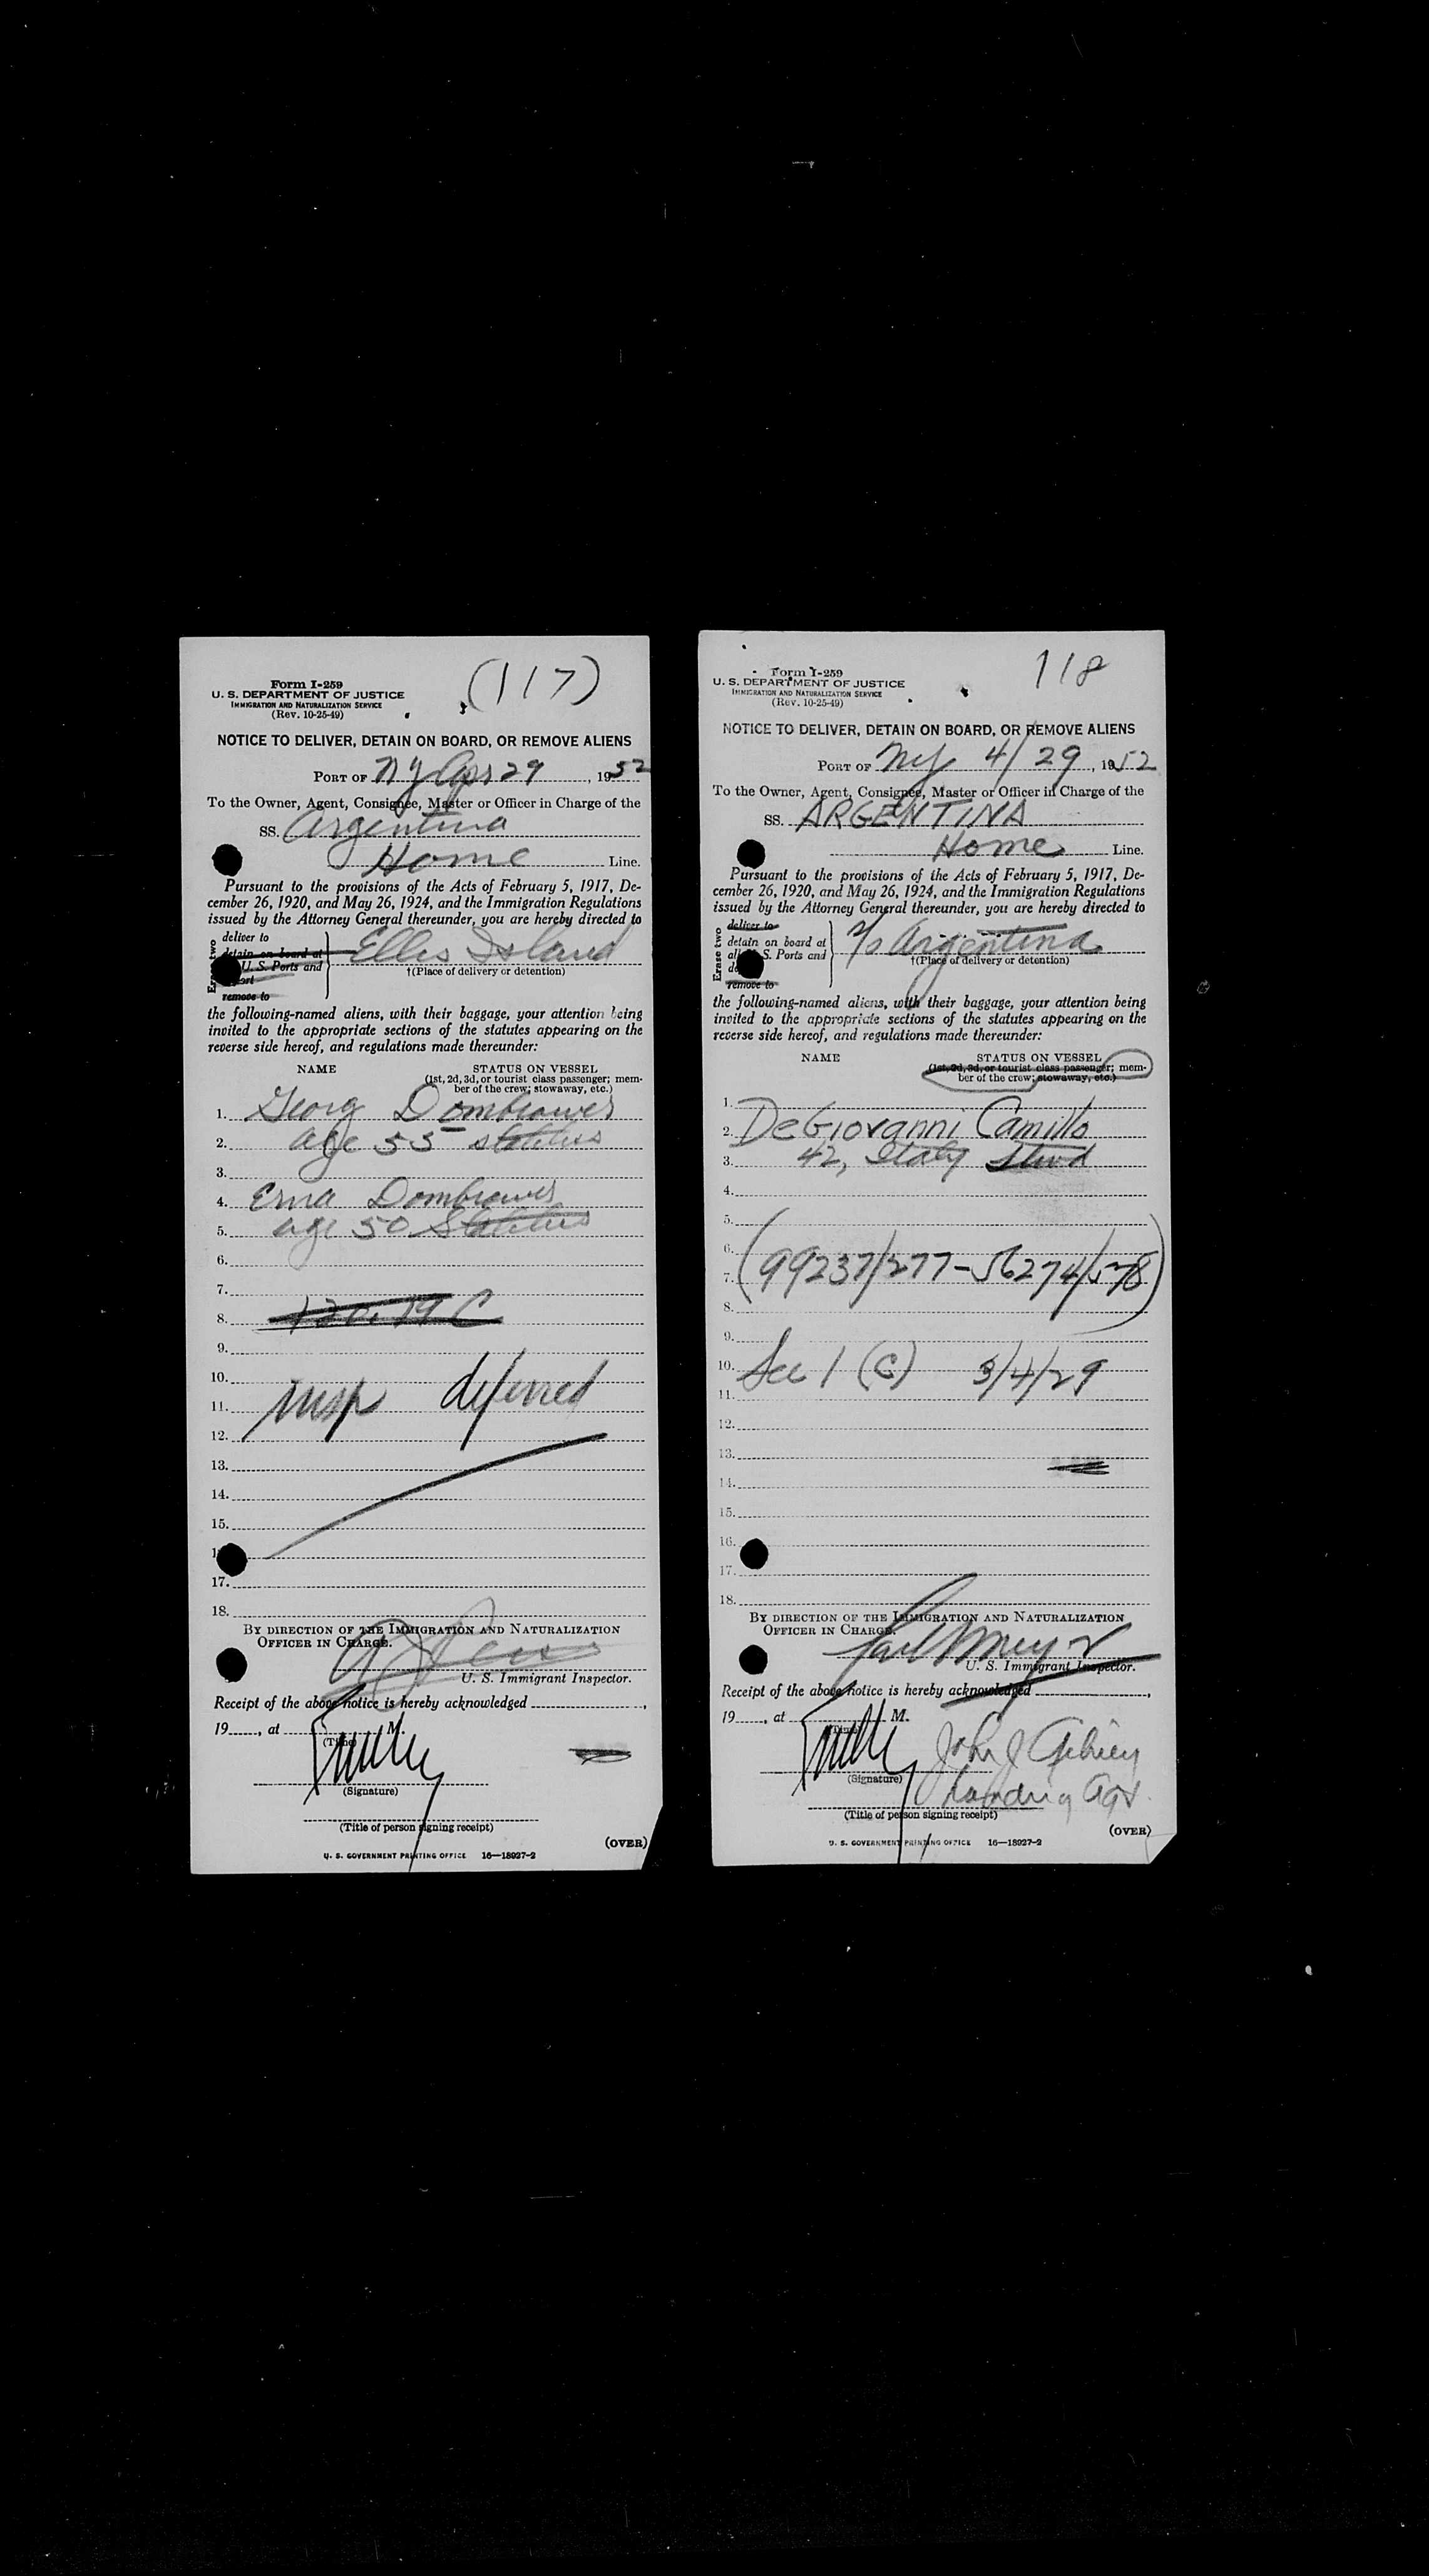 (117)
Form I-259
U. S. DEPARTMENT OF JUSTICE
IMMIGRATION AND NATURALIZATION SERVICE
(Rev. 10-25-49)
NOTICE TO DELIVER, DETAIN ON BOARD, OR REMOVE ALIENS
PORT OF NY Apr 29, 1952
To the Owner, Agent, Consignee, Master or Officer in Charge of the
SS. Argentina
Home Line.
Pursuant to the provisions of the Acts of February 5, 1917, De-
cember 26, 1920, and May 26, 1924, and the Immigration Regulations
issued by the Attorney General thereunder, you are hereby directed to
Erase two
deliver to
detain on board at
U. S. Ports and
remove to
Ellis Island
†(Place of delivery or detention)
the following-named aliens, with their baggage, your attention being
invited to the appropriate sections of the statutes appearing on the
reverse side hereof, and regulations made thereunder:
NAME STATUS ON VESSEL
(1st, 2d, 3d, or tourist class passenger; mem-
ber of the crew; stowaway, etc.)
1. Georg Dombrower
2. age 55
3.
4. Erna Dombrower
5. age 50
6.
7.
8.
9.
10.
11. insp deferred
12.
13.
14.
15.
17.
18.
BY DIRECTION OF THE IMMIGRATION AND NATURALIZATION
OFFICER IN CHARGE.
U. S. Immigrant Inspector.
Receipt of the above notice is hereby acknowledged
19, at M.
(Time)
(Signature)
(Title of person signing receipt)
(OVER)
U. S. GOVERNMENT PRINTING OFFICE 16—18927-2
118
Form I-259
U. S. DEPARTMENT OF JUSTICE
IMMIGRATION AND NATURALIZATION SERVICE
(Rev. 10-25-49)
NOTICE TO DELIVER, DETAIN ON BOARD, OR REMOVE ALIENS
PORT OF NY 4/29, 1952
To the Owner, Agent, Consignee, Master or Officer in Charge of the
SS. ARGENTINA
Home Line.
Pursuant to the provisions of the Acts of February 5, 1917, De-
cember 26, 1920, and May 26, 1924, and the Immigration Regulations
issued by the Attorney General thereunder, you are hereby directed to
Erase two
deliver to
detain on board at
all U. S. Ports and
remove to
Argentina
†(Place of delivery or detention)
the following-named aliens, with their baggage, your attention being
invited to the appropriate sections of the statutes appearing on the
reverse side hereof, and regulations made thereunder:
NAME STATUS ON VESSEL
(1st, 2d, 3d, or tourist class passenger; mem-
ber of the crew; stowaway, etc.)
1.
2. DeGiovanni Camillo
3. 42, Italy Stwd
4.
5.
6.
7. (99237/277-56274/578)
8.
9.
10. Sec 1 (C) 3/4/29
11.
12.
13.
14.
15.
16.
17.
18.
BY DIRECTION OF THE IMMIGRATION AND NATURALIZATION
OFFICER IN CHARGE.
U. S. Immigrant Inspector.
Receipt of the above notice is hereby acknowledged
19, at M.
(Time)
John J
(Signature)
Landing Agt.
(Title of person signing receipt)
(OVER)
U. S. GOVERNMENT PRINTING OFFICE 16—18927-2